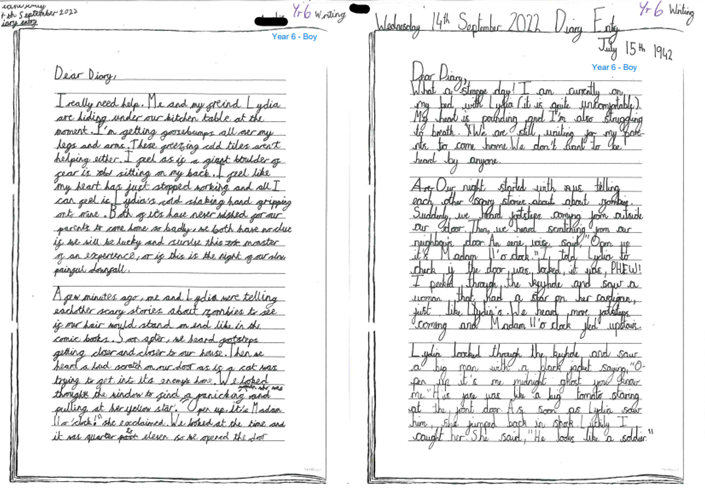 t eh September 2022
Diary Entry
Yr 6 Writing
Year 6 - Boy
Dear Diary,
I really need help. Me and my freind Lydia
are hiding under our kitchen table at the
moment. I'm getting goosebumps all over my
legs and arms. These freezing cold tiles aren't
helping either. I feel as if a giant boulder of
fear is sitting on my back. I feel like
my heart has just stopped working and all I
can feel is Lydia's cold shaking hand gripping
onto mine. Both of us have never wished for our
parents to come home so badly. We both have no clue
if we will be lucky and survive this master
of an experience, or if this is the night of our
painful downfall.
A few minutes ago, me and Lydia were telling
eachother scary stories about zombies to see
if our hair would stand on end like in the
comic books. Soon after, we heard footsteps
getting closer and closer to our house. Then we
heard a loud scratch on our door as if a cat was
trying to get into its enemys home. We looked
through the window to find a panicking and
pulling at her yellow star. "Open up, it's Madam
11 o'clock!" she exclaimed. We looked at the time and
it was quarter to eleven so we opened the door
Wednesday 14th September 2022 Diary Entry
Yr 6 Writing
July 15th 1942
Year 6 - Boy
Dear Diary,
What a strange day! I am currently on
my bed with Lydia (it is quite uncomfortable)
My head is pounding and I'm also struggling
to breath. We are still waiting for my pare-
nts to come home. We don't want to be
heard by anyone.
Our night started with us telling
each other scary stories about about zombies.
Suddenly, we heard footsteps coming from outside
our door. Then, we heard scratching from our
neighbour's door. An eerie voice said, "Open up
it's Madam 11 o'clock." I told Lydia to
check if the door was locked, it was, PHEW!
I peeked through the keyhole and saw a
woman that had a star on her cardigan,
just like Lydia's. We heard more footsteps
coming and Madam 11 o'clock fled upstairs.
Lydia looked through the keyhole and saw
a big man with a black jacket saying, "O-
pen up it's me midnight ghost you know
me." His face was like a big tomato staring
at the front door. As soon as Lydia saw
him, she jumped back in shock. Luckily I
caught her. She said, "He looks like a soldier."